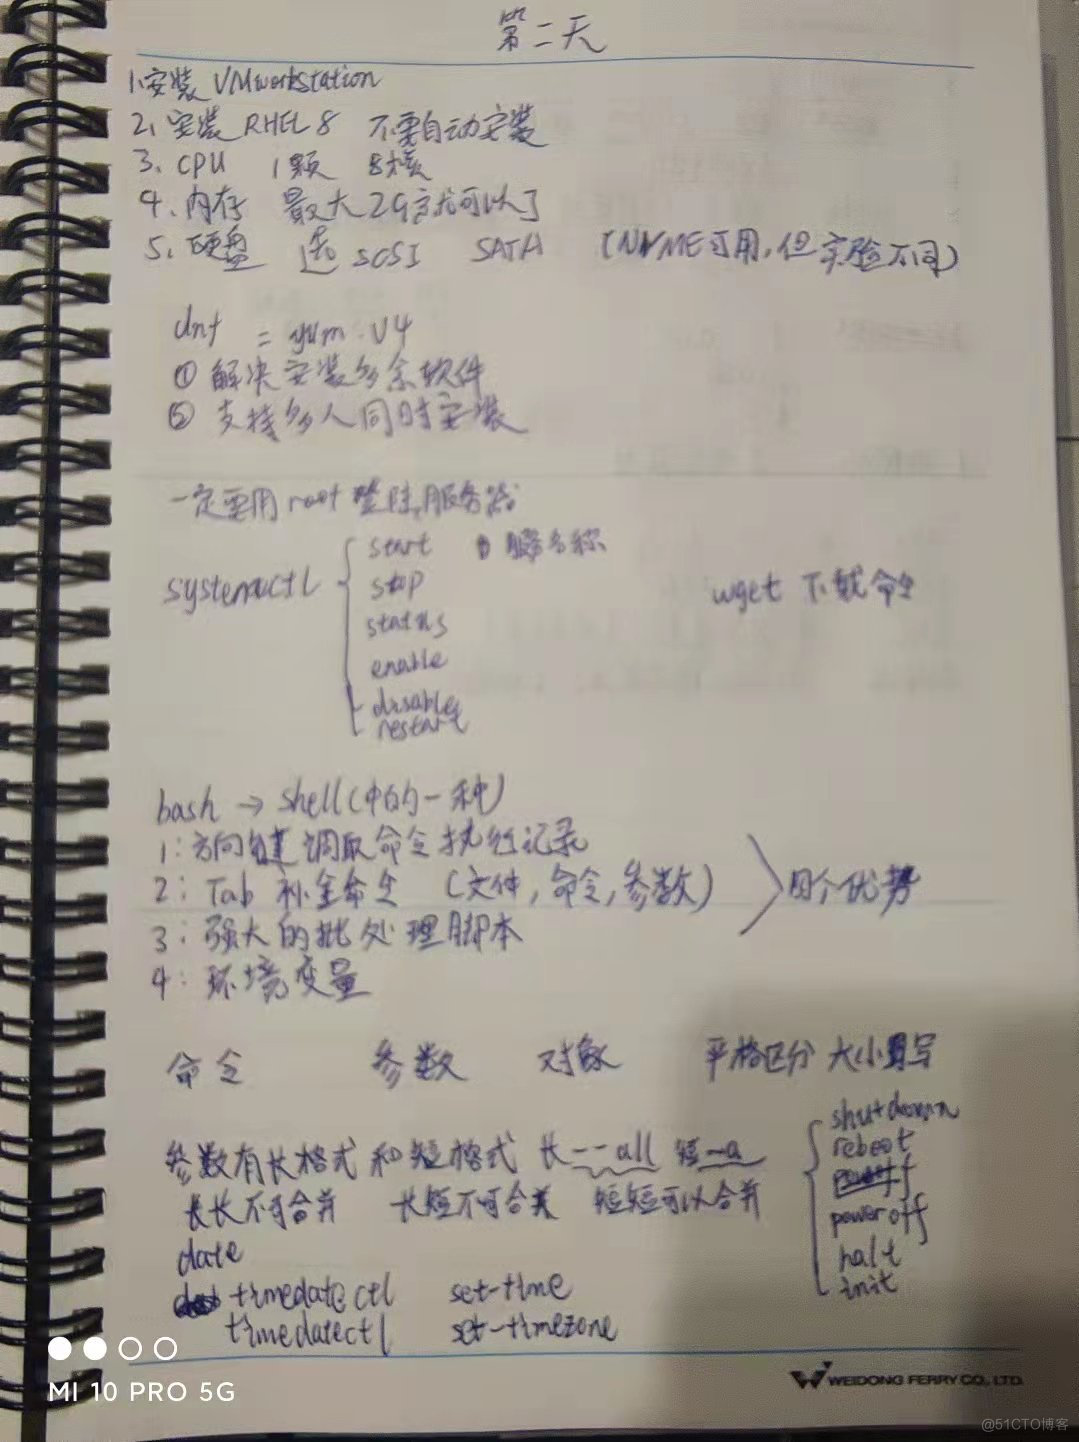 第二天
1.安装 VMworkstation
2、安装 RHEL 8 不要自动安装
3、CPU 1颗 8核
4、内存 最大2G就可以了
5、硬盘 选 SCSI SATA (NVME可用,但实验不同)
dnf = yum.V4
① 解决安装多余软件
② 支持多人同时安装
一定要用 root 登陆服务器
start 服务名称
systemctl stop wget 下载命令
status
enable
disable
restart
bash → shell(中的一种)
1:方向键调取命令执行记录
2:Tab 补全命令 (文件,命令,参数) 四个优势
3:强大的批处理脚本
4:环境变量
命令 参数 对象 严格区分 大小写
shutdown
参数有长格式和短格式 长--all 短-a reboot
长长不可合并 长短不可合并 短短可以合并 poweroff
date halt
timedatectl set-time init
timedatectl set-timezone
MI 10 PRO 5G
WEIDONG FERRY CO., LTD.
@51CTO博客